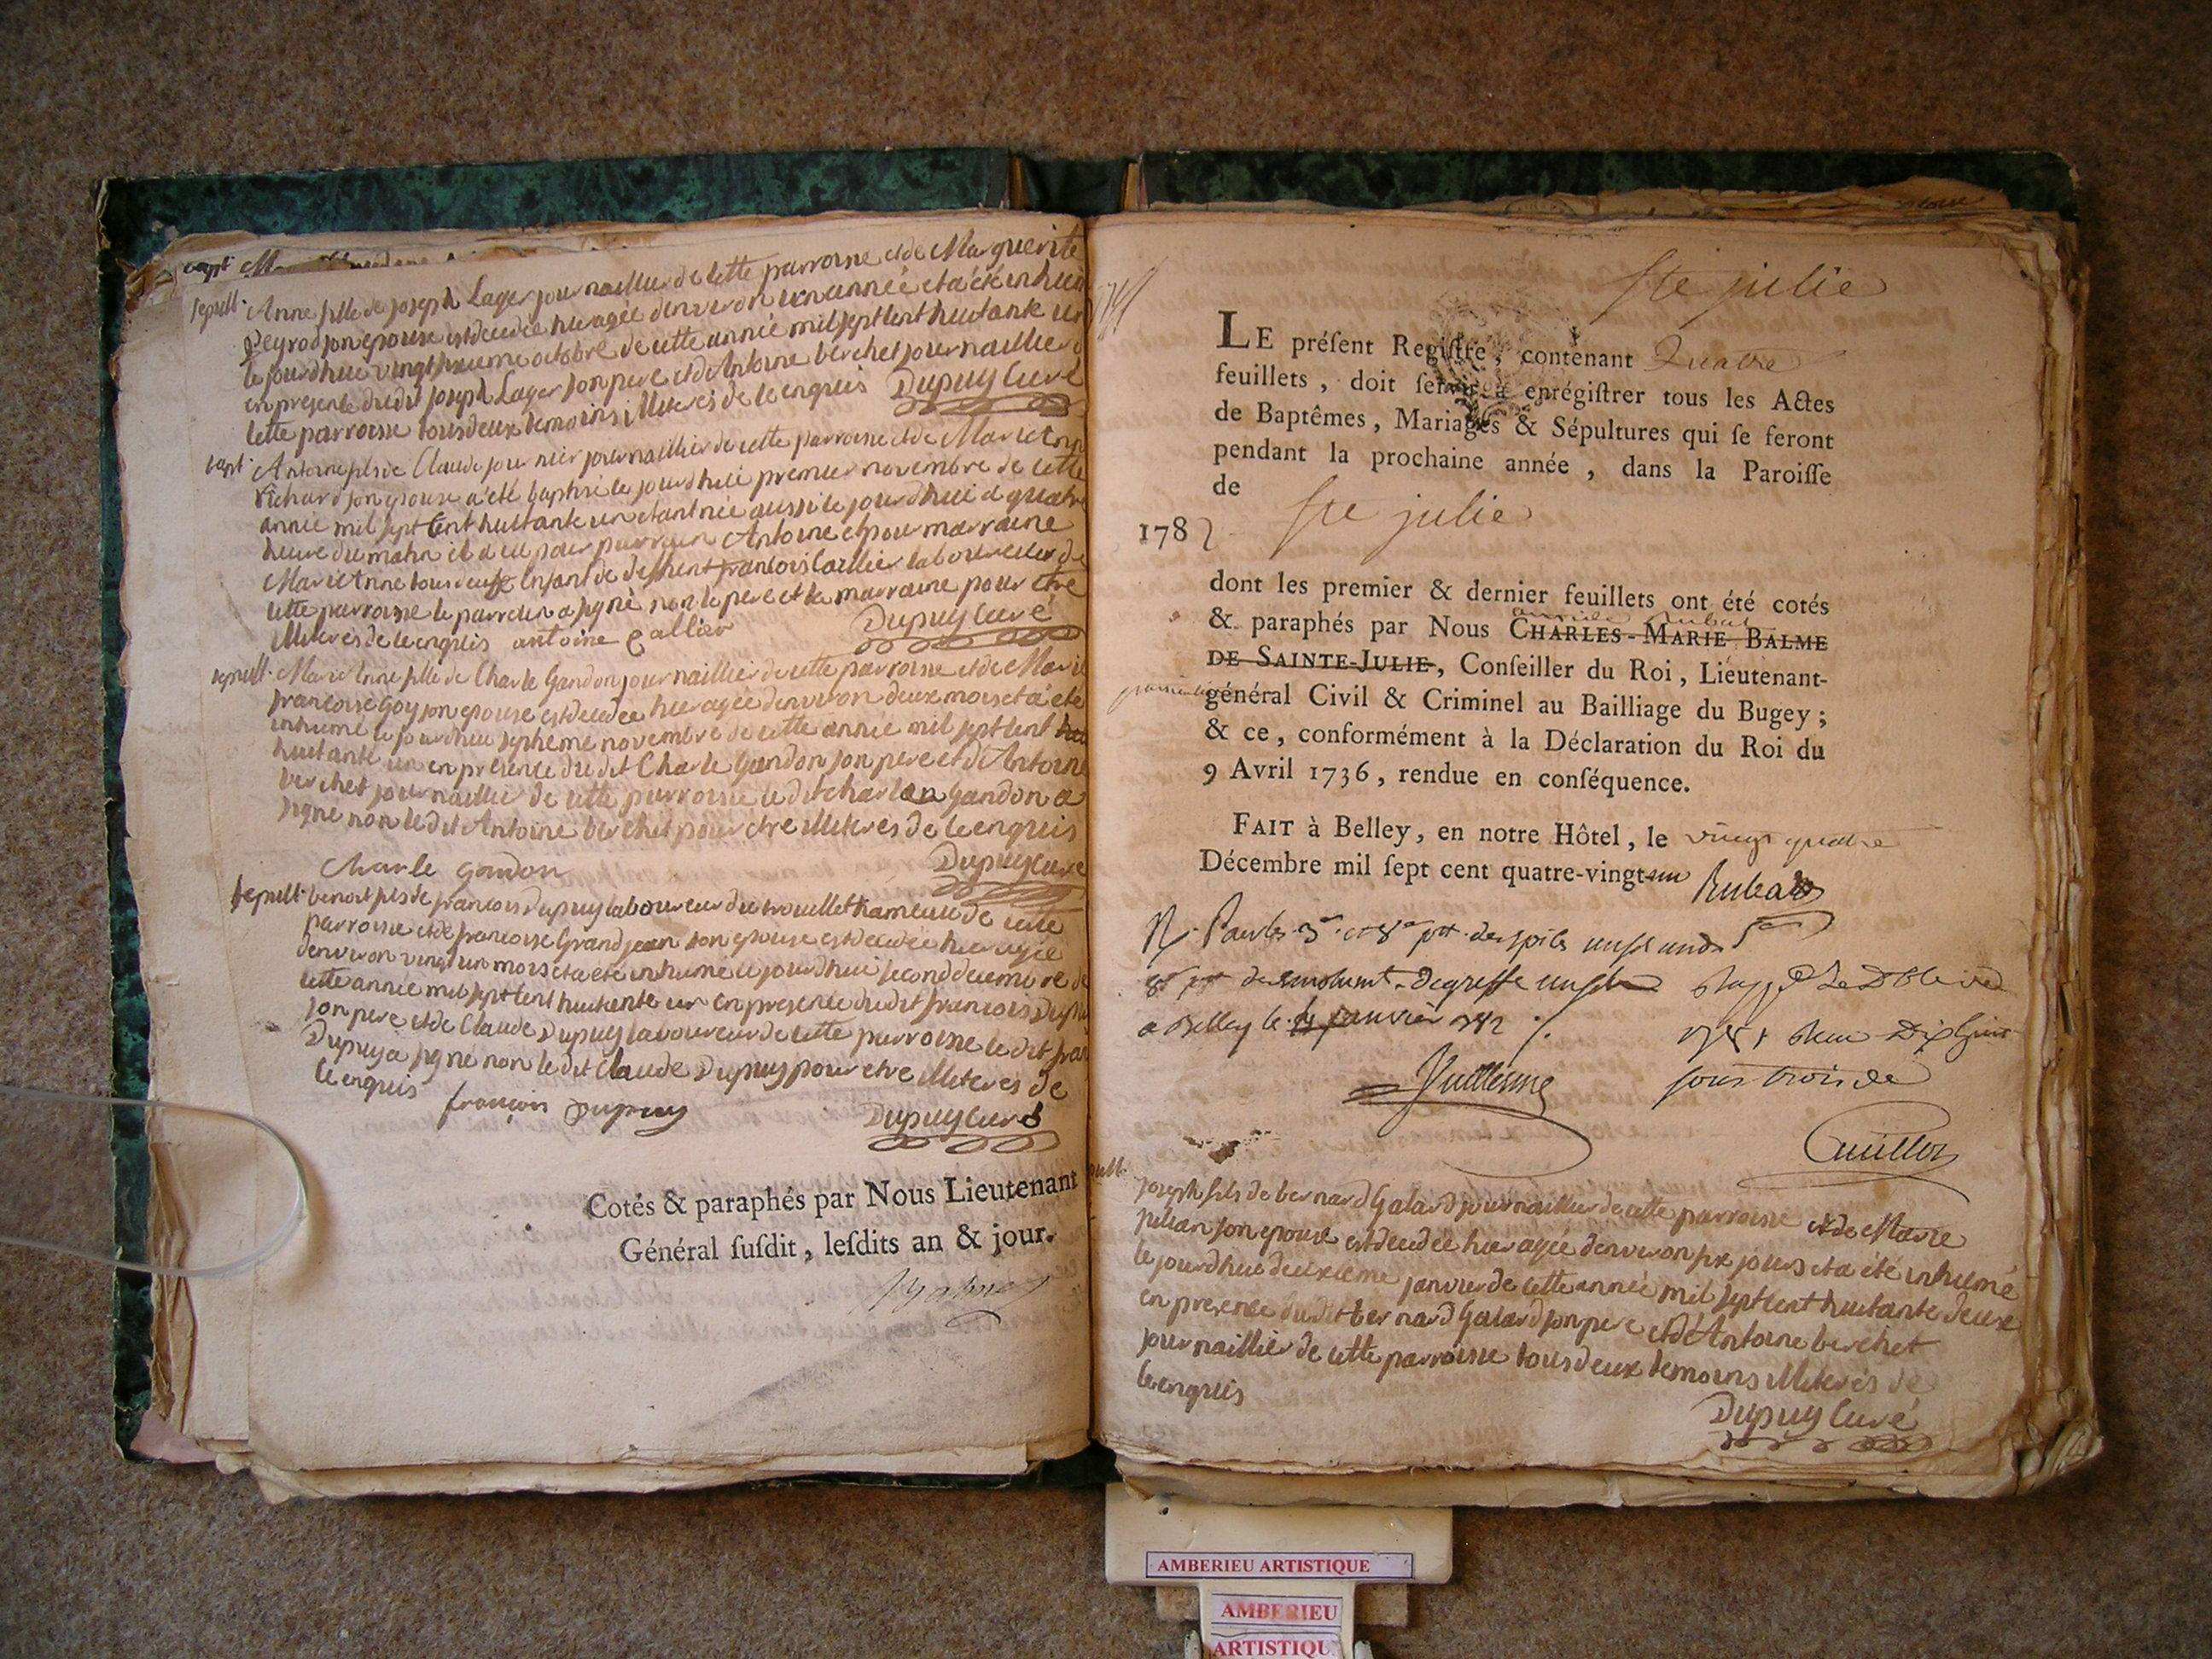 bapt
sepult. Anne fille de joseph Lager journaillier de cette parroisse et de Marguerite
Peyrod son epouse est decedée hier agée denviron un année et a été inhumé
le jourdhui vingt octobre de cette année mil sept cent huitante un
en presence dudit joseph Lager son pere et de Antoine berchet journaillier de
cette parroisse tous deux temoins illiterés de ce enquis Dupuy Curé
bapt. Antoine fils de Claude journaillier de cette parroisse et de Marie
Richard son epouse a été baptisé le jourdhui premier novembre de cette
année mil sept cent huitante un etant née aussi le jourdhui a quatre
heure du matin et a eu pour parrain Antoine et pour marraine
Marie Anne tous deux Enfant de deffunt francois Callier laboureur de
cette parroisse le parrain a signé non le pere et la marraine pour etre
illiterés de ce enquis antoine callier Dupuy Curé
sepult. Marie Anne fille de Charle Gandon journaillier de cette parroisse et de Marie
francoise Goy son epouse est decedée hier agée denviron deux mois et a été
inhumé le jourdhui septieme novembre de cette année mil sept cent
huitante un en presence dudit Charle Gandon son pere et de Antoine
berchet journaillier de cette parroisse ledit charle Gandon a
signé non ledit Antoine berchet pour etre illiterés de ce enquis
Charle gandon Dupuy Curé
sepult. benoit fils de francois Dupuy laboureur du trouillet hameau de cette
parroisse et de francoise Grandjean son epouse est decedée hier agée
denviron vingt un mois et a été inhumé le jourdhui second decembre de
cette année mil sept cent huitante un en presence dudit francois Dupuy
son pere et de Claude Dupuy laboureur de cette parroisse ledit fran
Dupuy a signé non ledit Claude Dupuy pour etre illiterés de
ce enquis françois Dupuy Dupuy Curé
Cotés & paraphés par Nous Lieutenant
Général ſuſdit, leſdits an & jour.
Ste julie
LE préſent Regiſtre, contenant Quatre
feuillets, doit ſervir à enrégiſtrer tous les Actes
de Baptêmes, Mariages & Sépultures qui ſe feront
pendant la prochaine année, dans la Paroiſſe
de Ste julie
1782
dont les premier & dernier feuillets ont été cotés
& paraphés par Nous CHARLES-MARIE BALME
DE SAINTE-JULIE, Conſeiller du Roi, Lieutenant-
général Civil & Criminel au Bailliage du Bugey;
& ce, conformément à la Déclaration du Roi du
9 Avril 1736, rendue en conſéquence.
FAIT à Belley, en notre Hôtel, le vingt quatre
Décembre mil ſept cent quatre-vingt un
a Belley le janvier 1782
sous trois de
Cuillon
joseph fils de bernard Galard journaillier de cette parroisse et de Marie
julian son epouse est decedée hier agée denviron six jours et a été inhumé
le jourdhui deuxieme janvier de cette année mil sept cent huitante deux
en presence dudit bernard Galard son pere et de Antoine berchet
journaillier de cette parroisse tous deux temoins illiterés de
ce enquis
Dupuy Curé
AMBERIEU ARTISTIQUE
AMBERIEU
ARTISTIQU